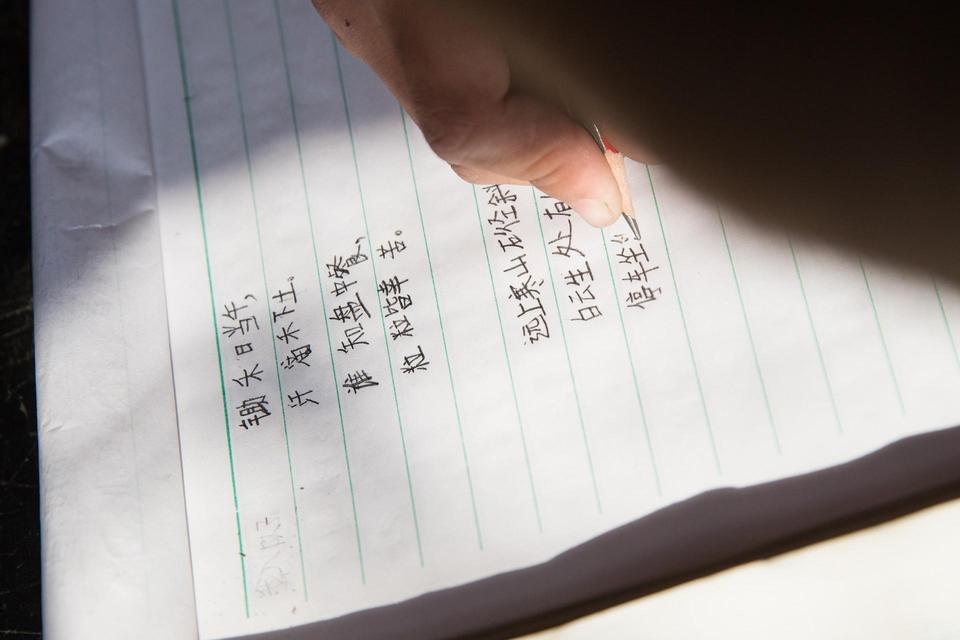 锄禾日当午,
汗滴禾下土。
谁知盘中餐,
粒粒皆辛苦。
远上寒山石径斜
白云生处有
停车坐